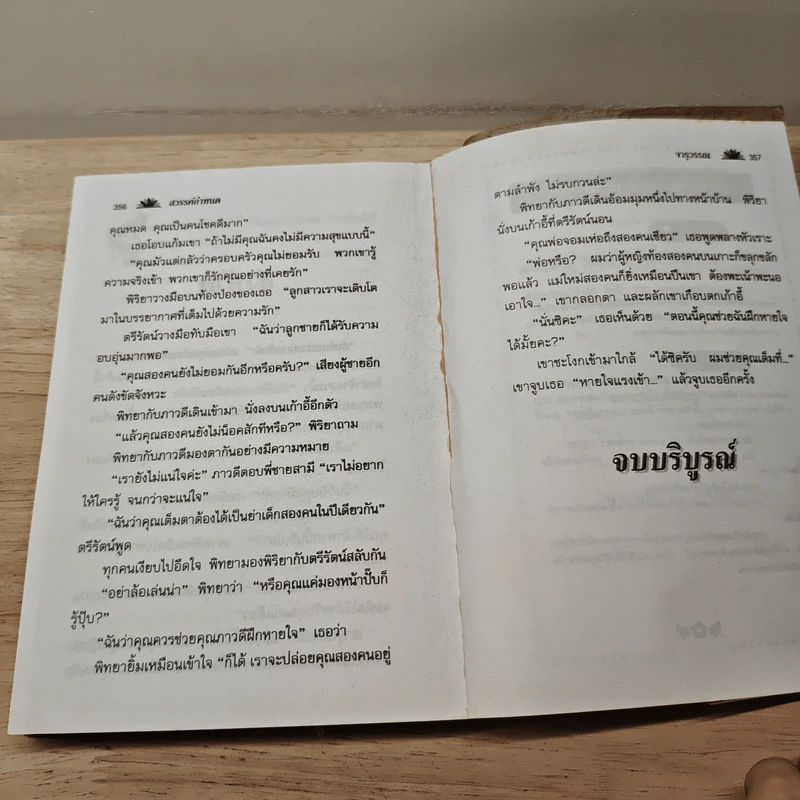 356 สวรรค์กำหนด
คุณหมด คุณเป็นคนโชคดีมาก”
เธอโอบแก้มเขา “ถ้าไม่มีคุณฉันคงไม่มีความสุขแบบนี้”
“คุณมัวแต่กลัวว่าครอบครัวคุณไม่ยอมรับ พวกเขารู้
ความจริงเข้า พวกเขาก็รักคุณอย่างที่เคยรัก”
พิริยาวางมือบนท้องป่องของเธอ “ลูกสาวเราจะเติบโต
มาในบรรยากาศที่เต็มไปด้วยความรัก”
ตรีรัตน์วางมือทับมือเขา “ฉันว่าลูกชายก็ได้รับความ
อบอุ่นมากพอ”
“คุณสองคนยังไม่ยอมกันอีกหรือครับ?” เสียงผู้ชายอีก
คนดังขัดจังหวะ
พิทยากับภาวดีเดินเข้ามา นั่งลงบนเก้าอี้อีกตัว
“แล้วคุณสองคนยังไม่น็อคสักทีหรือ?” พิริยาถาม
พิทยากับภาวดีมองตากันอย่างมีความหมาย
“เรายังไม่แน่ใจค่ะ” ภาวดีตอบพี่ชายสามี “เราไม่อยาก
ให้ใครรู้ จนกว่าจะแน่ใจ”
“ฉันว่าคุณเต็มตาต้องได้เป็นย่าเด็กสองคนในปีเดียวกัน”
ตรีรัตน์พูด
ทุกคนเงียบไปอึดใจ พิทยามองพิริยากับตรีรัตน์สลับกัน
“อย่าล้อเล่นน่า” พิทยาว่า “หรือคุณแค่มองหน้าปั๊บก็
รู้ปุ๊บ?”
“ฉันว่าคุณควรช่วยคุณภาวดีฝึกหายใจ” เธอว่า
พิทยายิ้มเหมือนเข้าใจ “ก็ได้ เราจะปล่อยคุณสองคนอยู่
จารุวรรณ 357
ตามลำพัง ไม่รบกวนล่ะ”
พิทยากับภาวดีเดินอ้อมมุมหนึ่งไปทางหน้าบ้าน พิริยา
นั่งบนเก้าอี้ที่ตรีรัตน์นอน
“คุณพ่อจอมเห่อถึงสองคนเชียว” เธอพูดพลางหัวเราะ
“พ่อหรือ? ผมว่าผู้หญิงท้องสองคนบนเกาะก็ขลุกขลัก
พอแล้ว แม่ใหม่สองคนก็ยิ่งเหมือนปีนเขา ต้องพะเน้าพะนอ
เอาใจ...” เขากลอกตา และผลักเขาเกือบตกเก้าอี้
“นั่นซิคะ” เธอเห็นด้วย “ตอนนี้คุณช่วยฉันฝึกหายใจ
ได้มั้ยคะ?”
เขาชะโงกเข้ามาใกล้ “ได้ซิครับ ผมช่วยคุณเต็มที่...”
เขาจูบเธอ “หายใจแรงเข้า...” แล้วจูบเธออีกครั้ง
จบบริบูรณ์